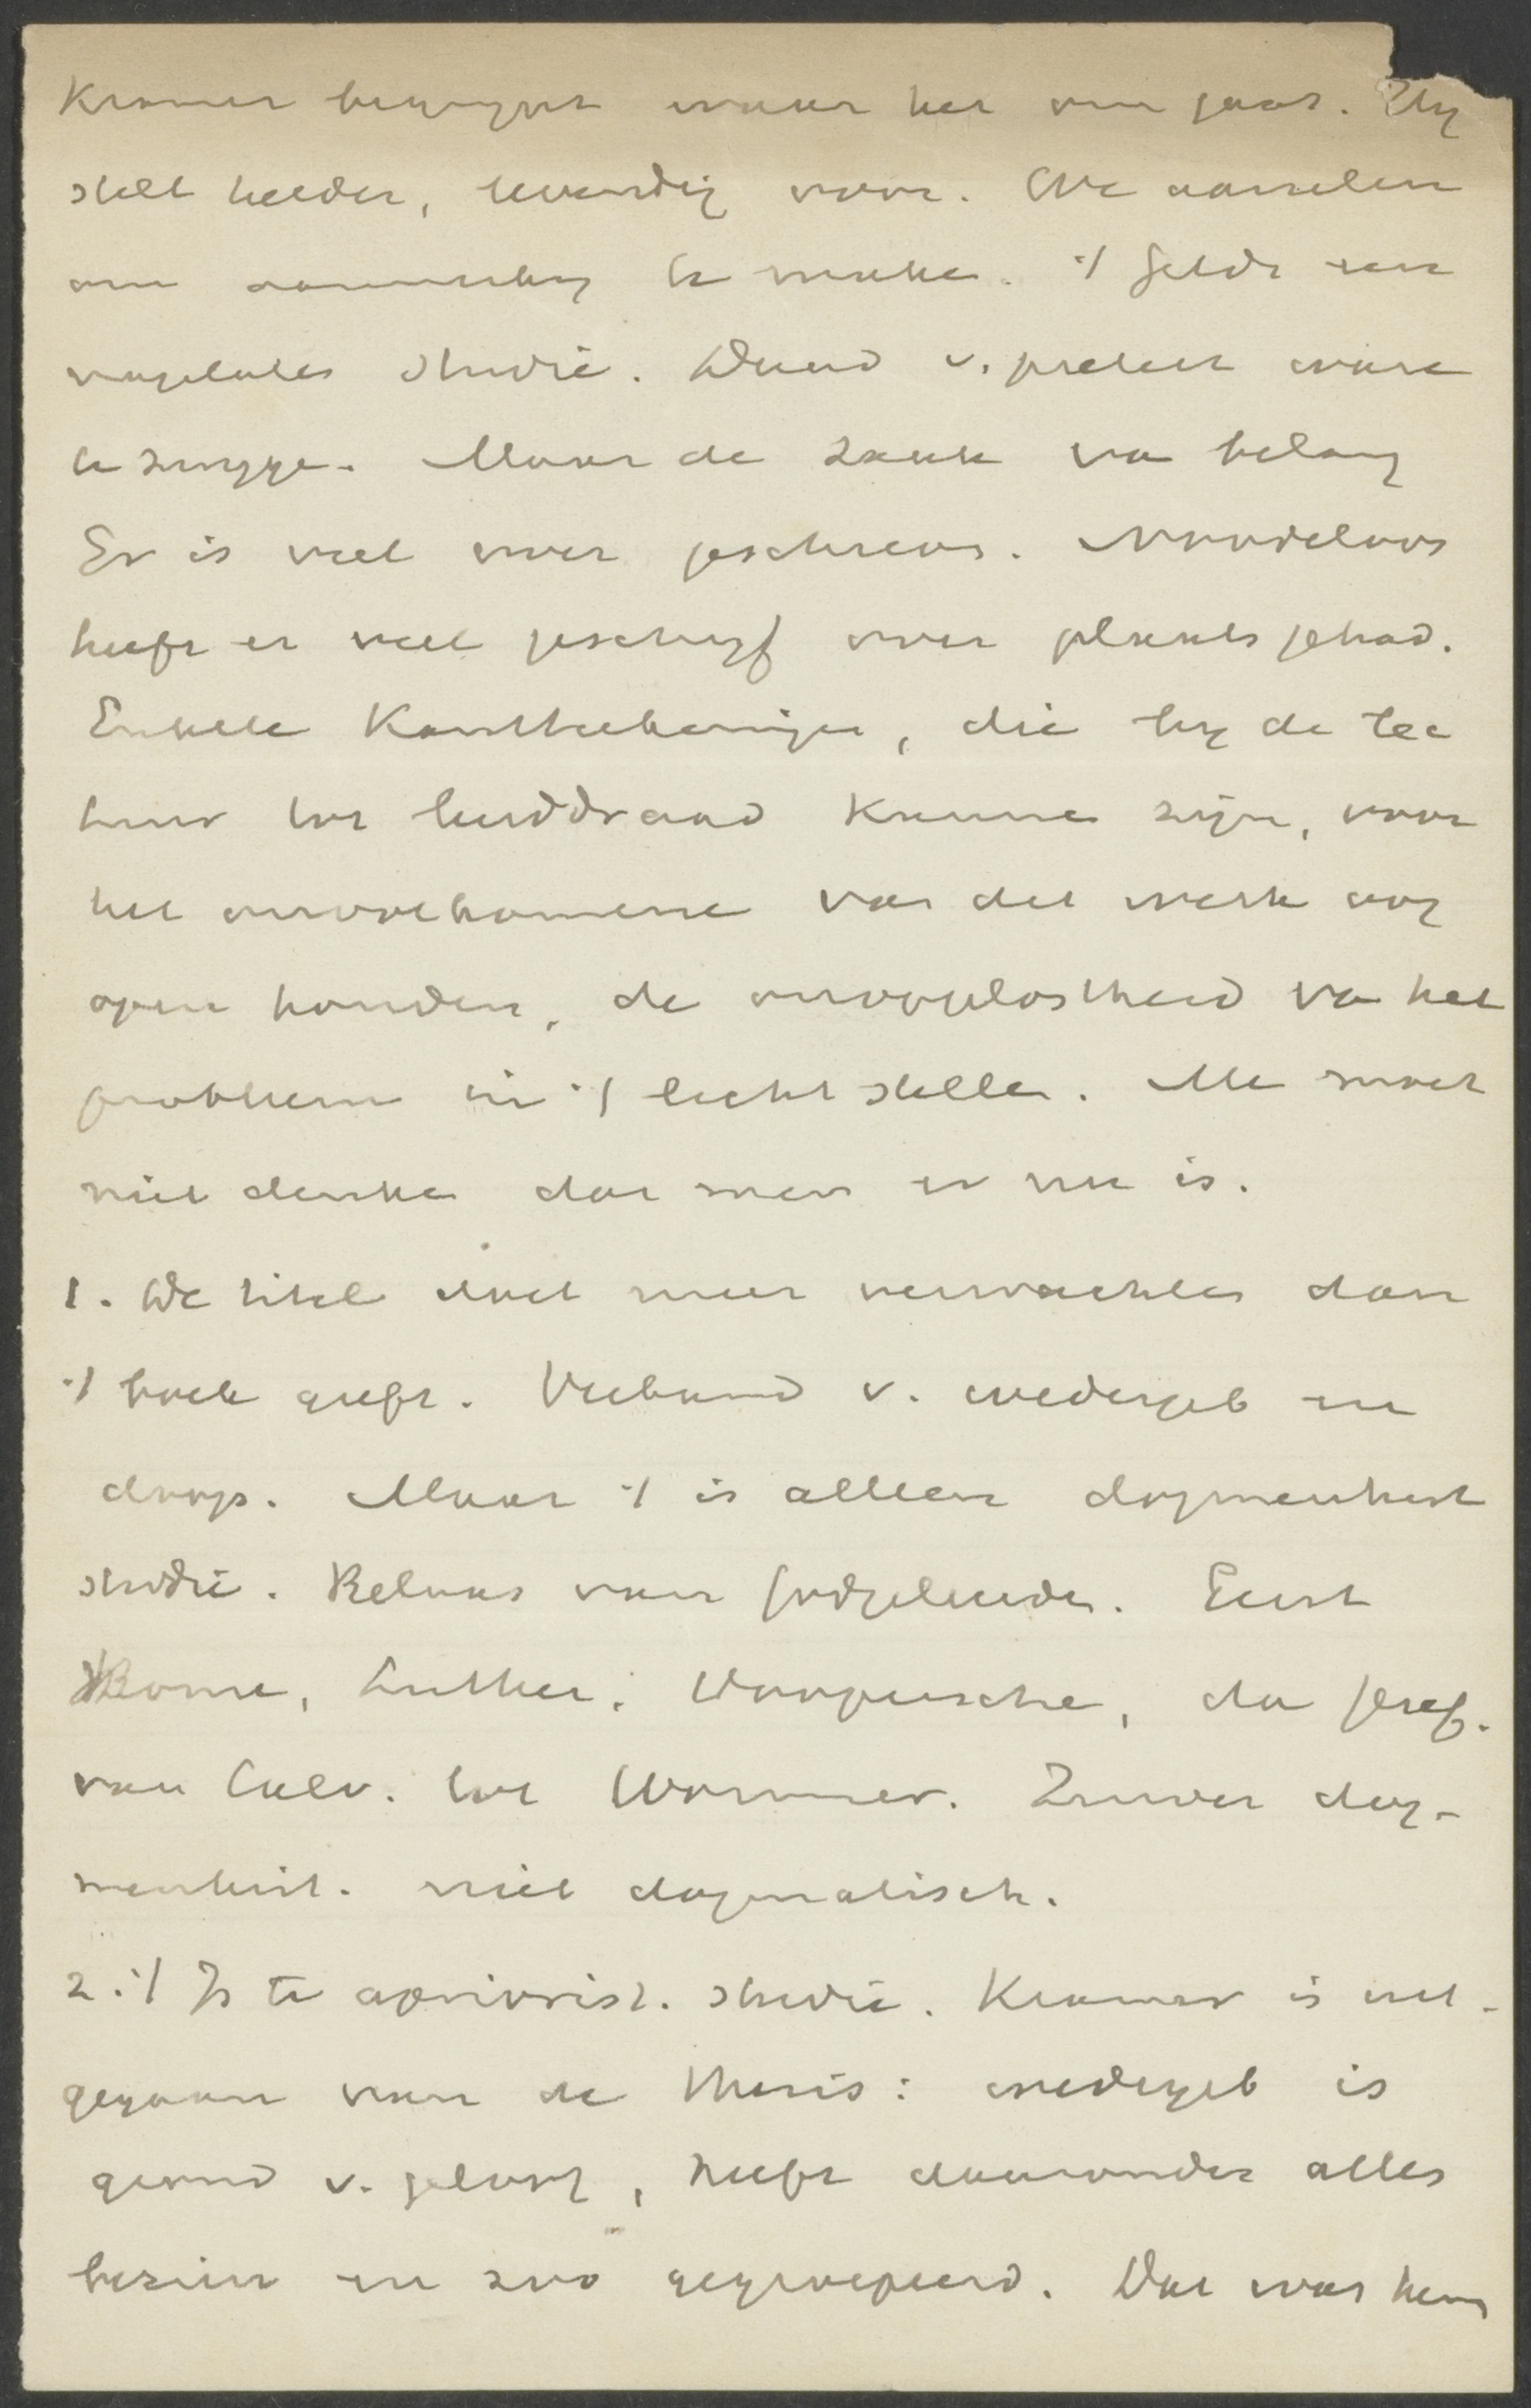 Kramer begrijpt waar het om gaat. Hij
stelt helder, levendig voor. We aarzelen
om aanmerking te maken. 't Geldt een
nagelaten studie. Daad v. pieteit ware
te zwijgen. Maar de zaak van belang
Er is veel over geschreven. Noodeloos
heeft er veel geschrijf over plaats gehad.
Enkele Kantteekeningen, die bij de lec
tuur tot leiddraad kunnen zijn, voor
het onvolkomene van dit werk oog
open houden, de onopgelostheid van het
probleem in 't licht stellen. Men moet
niet denken dat men er nu is.
1. De titel doet meer verwachten dan
't boek geeft. Verband v. wedergeb en
doop. Maar 't is alleen dogmenhist
studie. Relaas van godgeleerden. Eerst
Rome, Luther, Doopersche, dan Geref.
van Calv. tot Wormser. Zuiver dog-
menhist. niet dogmatisch.
2. 't Is te aprioris. studie. Kramer is uit-
gegaan van de thesis: wedergeb is
grond v. doop, heeft daaronder alles
bezien en zoo gegroepeerd. Dat was hem